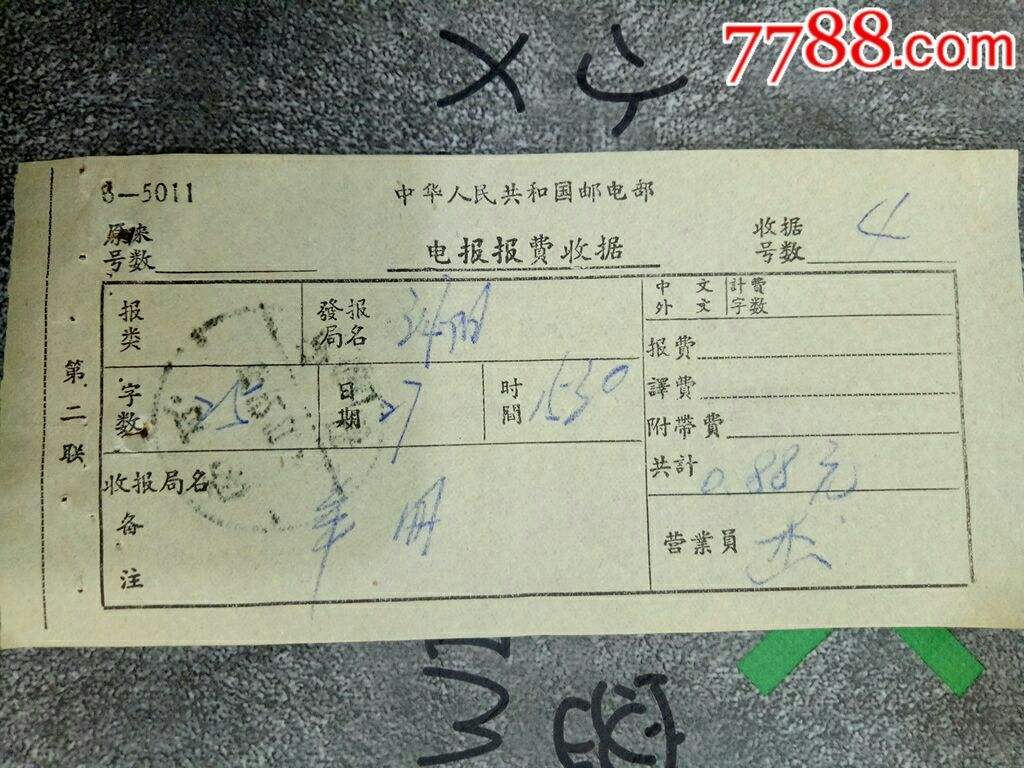 7788.com
8-5011
中华人民共和国邮电部
原来
号数
电报报費收据
收据
号数 4
第二联
报类
發报
局名
中文
外文
計費
字数
报費
字数 25
日期 27
时間 1530
譯費
附带費
收报局名
共計 0.88元
备注
营業員